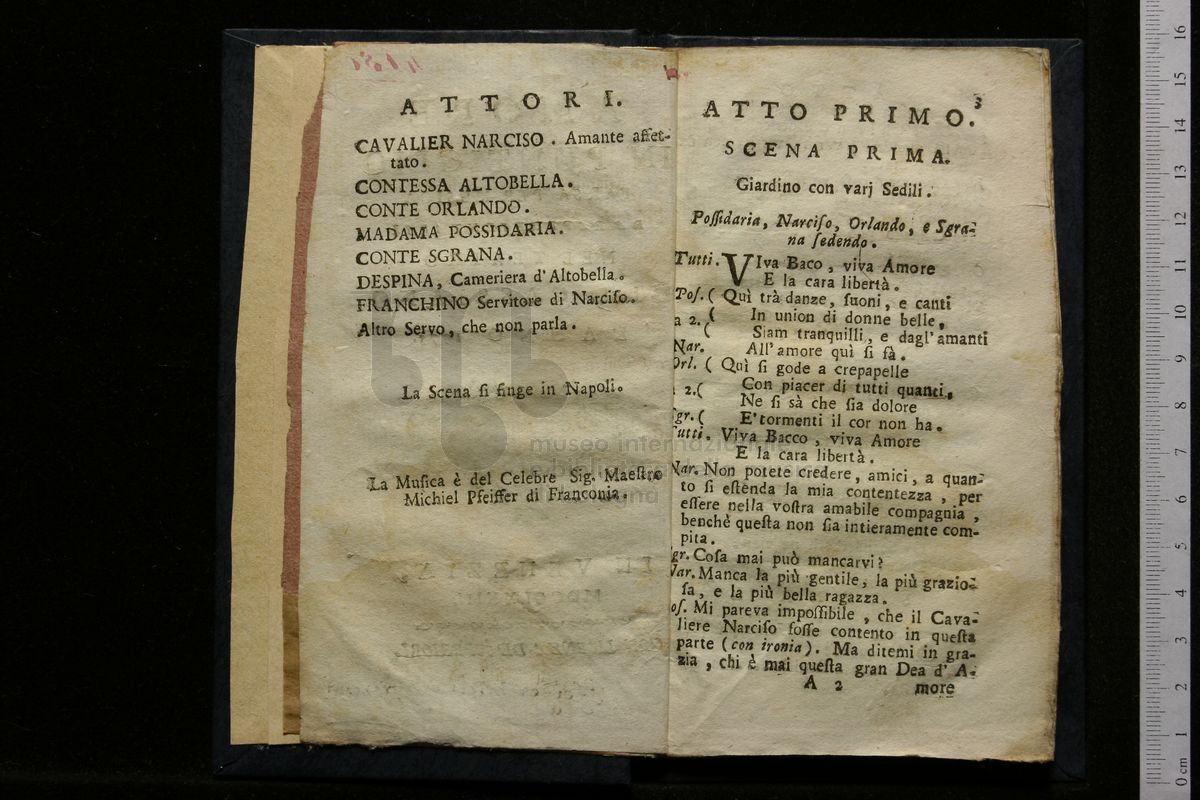 A T T O R I.
CAVALIER NARCISO. Amante affet-
tato.
CONTESSA ALTOBELLA.
CONTE ORLANDO.
MADAMA POSSIDARIA.
CONTE SGRANA.
DESPINA, Cameriera d'Altobella.
FRANCHINO Servitore di Narciſo.
Altro Servo, che non parla.
La Scena ſi finge in Napoli.
La Muſica è del Celebre Sig. Maeſtro
Michiel Pfeiffer di Franconia.
3
ATTO PRIMO.
SCENA PRIMA.
Giardino con varj Sedili.
Poſſidaria, Narciſo, Orlando, e Sgra-
na ſedendo.
Tutti. VIva Baco, viva Amore
E la cara libertà.
Poſ. ( Quì trà danze, ſuoni, e canti
a 2. ( In union di donne belle,
( Siam tranquilli, e dagl'amanti
Nar. All'amore quì ſi ſà.
Orl. ( Quì ſi gode a crepapelle
a 2.( Con piacer di tutti quanti,
Ne ſi sà che ſia dolore
Sgr. ( E' tormenti il cor non ha.
Tutti. Viva Bacco, viva Amore
E la cara libertà.
Nar. Non potete credere, amici, a quan-
to ſi eſtenda la mia contentezza, per
eſſere nella voſtra amabile compagnia,
benchè queſta non ſia intieramente com-
pita.
Sgr. Coſa mai può mancarvi?
Nar. Manca la più gentile, la più grazio-
ſa, e la più bella ragazza.
Poſ. Mi pareva impoſſibile, che il Cava-
liere Narciſo foſſe contento in queſta
parte (con ironia). Ma ditemi in gra-
zia, chi è mai queſta gran Dea d'A-
A 2 more
museo internazionale
0 cm 1 2 3 4 5 6 7 8 9 10 11 12 13 14 15 16